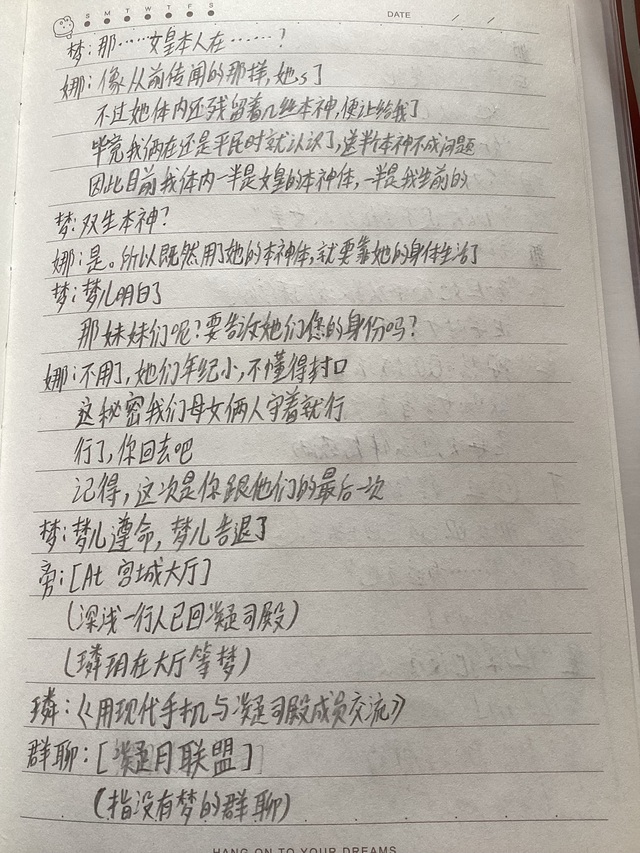 S M T W T F S
DATE / /
梦:那……女皇本人在……?
娜:像从前传闻的那样,她s了
不过她体内还残留着几丝本神,便让给我了
毕竟我俩在还是平民时就认识了,送半个本神不成问题
因此目前我体内一半是女皇的本神体,一半是我生前的
梦:双生本神?
娜:是。所以既然用了她的本神体,就要靠她的身体生活了
梦:梦儿明白了
那妹妹们呢?要告诉她们您的身份吗?
娜:不用了,她们年纪小,不懂得封口
这秘密我们母女俩人守着就行
行了,你回去吧
记得,这次是你跟他们的最后一次
梦:梦儿遵命,梦儿告退了
旁:[At 宫城大厅]
(深浅一行人已回凝司殿)
(璘玥在大厅等梦)
璘:《用现代手机与凝司殿成员交流》
群聊:[凝月联盟]
(指没有梦的群聊)
HANG ON TO YOUR DREAMS